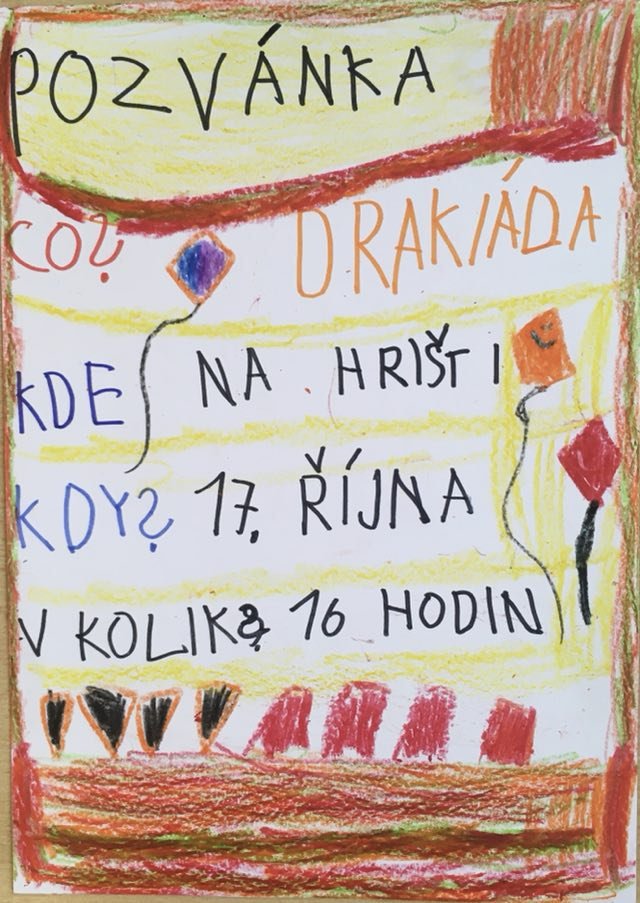 POZVÁNKA
CO? DRAKIÁDA
KDE NA HRIŠTI
KDY? 17. ŘÍJNA
V KOLIK? 16 HODIN